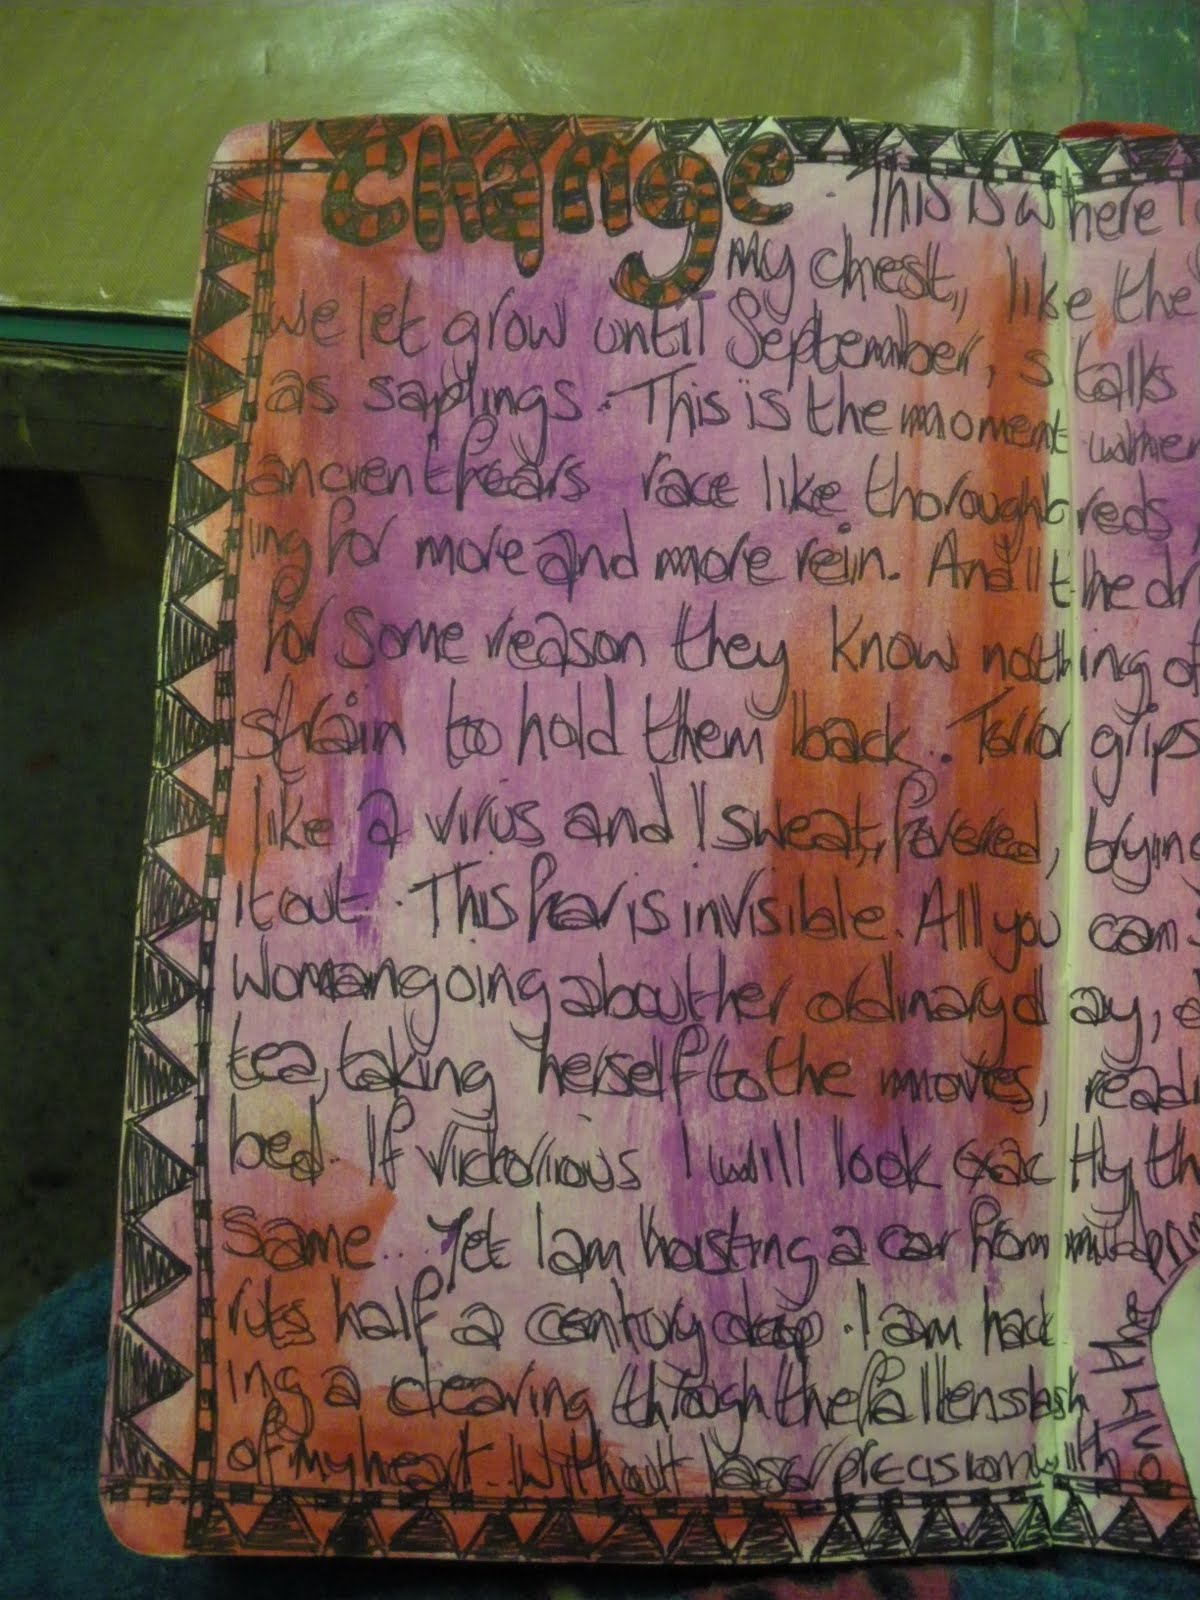 Change. This is where I
my chest, like the
we let grow until September, stalks
as saplings. This is the moment when
ancient fears race like thoroughbreds,
ling for more and more rein. And I the dr
for some reason they know nothing of
strain to hold them back. Terror grips
like a virus and I sweat, fevered, trying
it out. This fear is invisible. All you can
woman going about her ordinary day,
tea, taking herself to the movies, readi
bed. If victorious I will look exactly th
same. Yet I am hoisting a car from mud
ruts half a century deep. I am hack
ing a clearing through the fallen slash
of my heart. Without laser precision, with